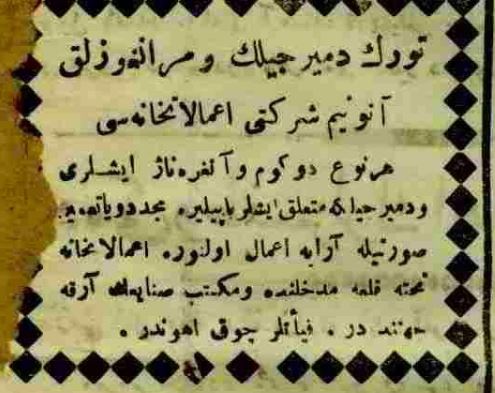 تورك دميرجيلك و مرانغوزلق
آنونيم شركتى اعمالاتخانه سى
هرنوع دوكوم وآنغره ناژ ايشلرى
ودميرجيلكه متعلق ايشلر ياپيلير. مجددوياتعمير
صورتيله آرابه اعمال اولنور. اعمالاتخانه
تحته قلعه مدخلنده ومكتب صنايعك آرقه
جهتنده در . فيأتلر چوق اهوندر .